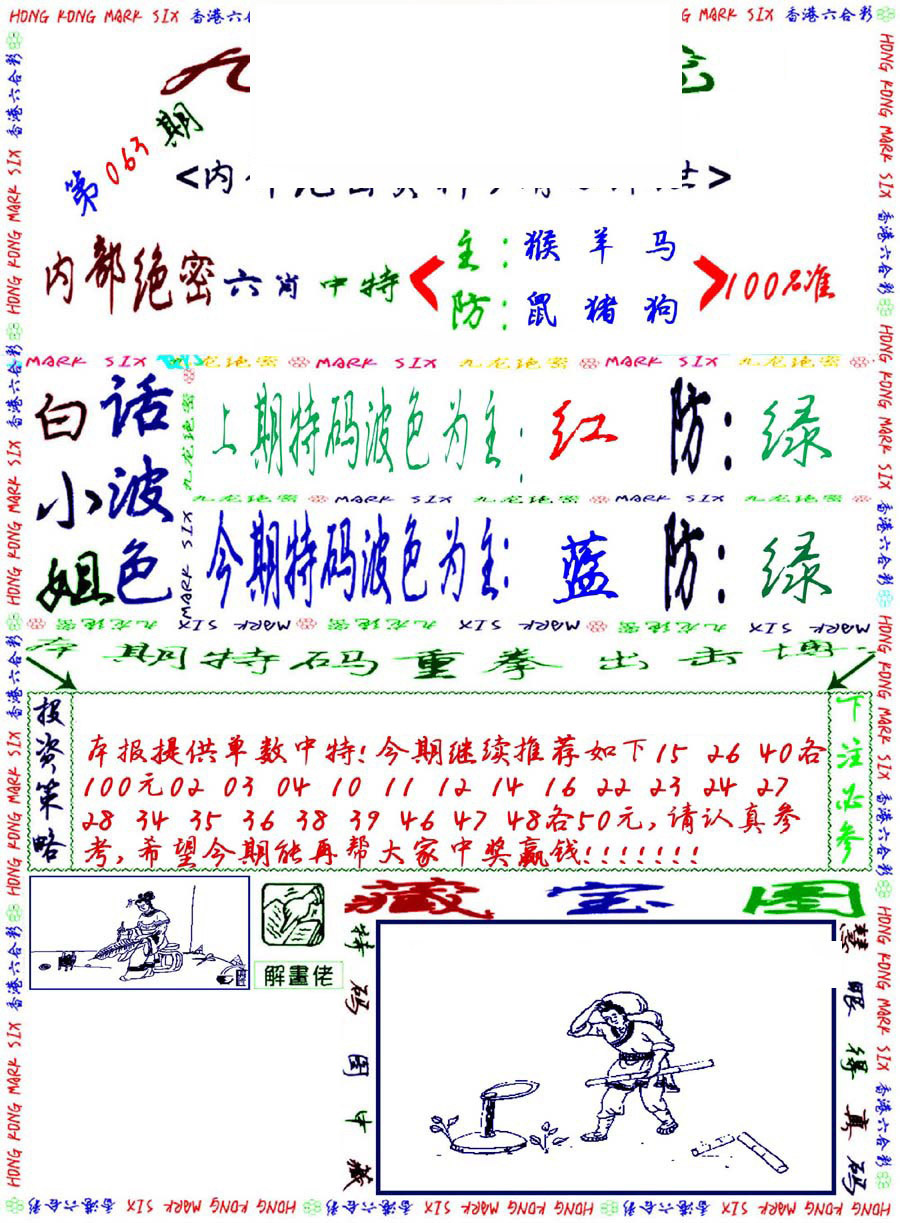 HONG KONG MARK SIX 香港六合彩
第063期
内部绝密六肖中特
主：猴羊马
防：鼠猪狗
100%准
MARK SIX 九龙绝密 MARK SIX 九龙绝密 MARK SIX 九龙绝密
白话
小波
姐色
上期特码波色为主：红 防：绿
九龙绝密 MARK SIX 九龙绝密 MARK SIX 九龙绝密
今期特码波色为主：蓝 防：绿
MARK SIX 九龙绝密 MARK SIX 九龙绝密 MARK SIX 九龙绝密
期特码重拳出击
投资策略
本报提供单数中特!今期继续推荐如下15 26 40各
100元02 03 04 10 11 12 14 16 22 23 24 27
28 34 35 36 38 39 46 47 48各50元,请认真参
考,希望今期能再帮大家中奖赢钱!!!!!!!
下注必参
藏宝图
解畫佬
特码图中藏
慧眼得真码
HONG KONG MARK SIX 香港六合彩